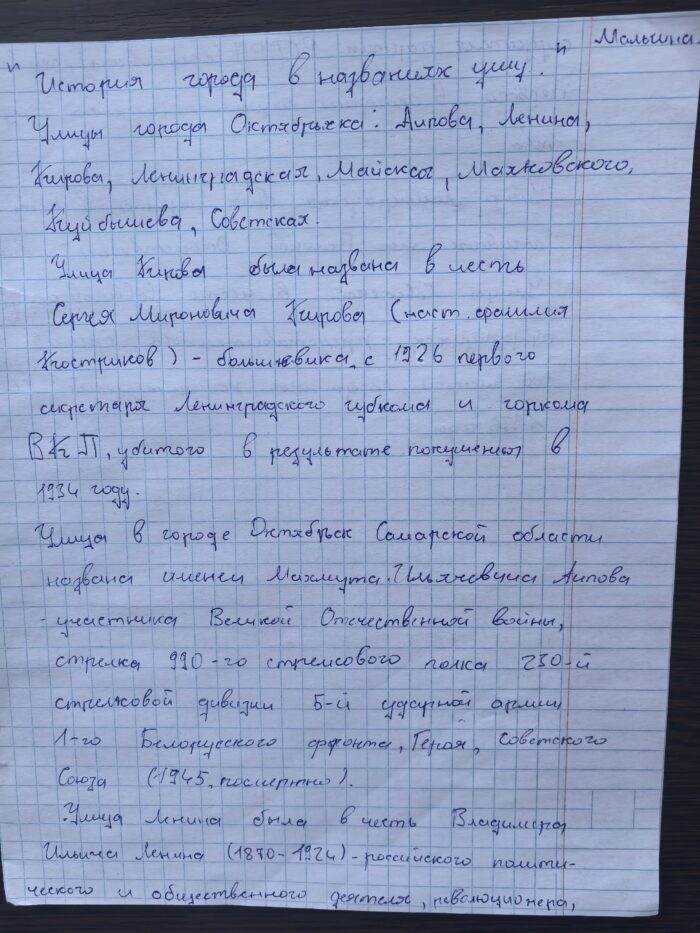 Мальчина.
"История города в названиях улиц."
Улицы города Октябрьска: Аипова, Ленина,
Кирова, Ленинградская, Майская, Маяковского,
Куйбышева, Советская.
Улица Кирова была названа в честь
Сергея Мироновича Кирова (наст. фамилия
Костриков) - большевика, с 1926 первого
секретаря Ленинградского губкома и горкома
ВКП, убитого в результате покушения в
1934 году.
Улица в городе Октябрьск Самарской области
названа имени Махмута Ильячевича Аипова
- участника Великой Отечественной войны,
стрелка 990-го стрелкового полка 230-й
стрелковой дивизии 5-й ударной армии
1-го Белорусского фронта, Героя, Советского
Союза (1945, посмертно).
Улица Ленина была в честь Владимира
Ильича Ленина (1870-1924) - российского полити-
ческого и общественного деятеля, революционера,